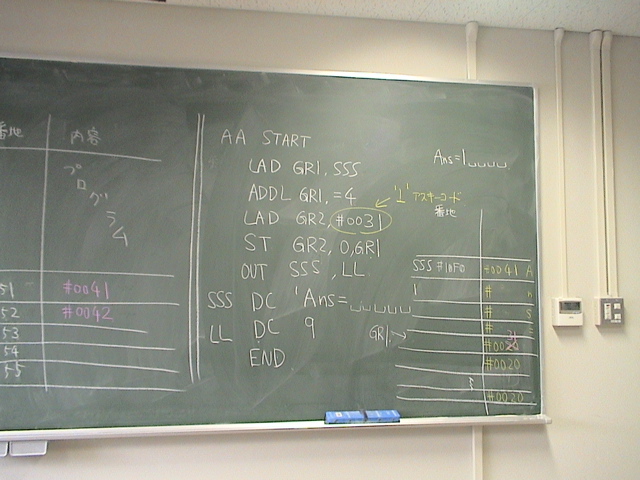 番地 内容
プログラム
51 #0041
52 #0042
53
54
55
AA START
LAD GR1, SSS
ADDL GR1, =4
LAD GR2, #0031
ST GR2, 0, GR1
OUT SSS, LL
SSS DC 'Ans=␣␣␣␣␣
LL DC 9
END
Ans=1␣␣␣␣
'1' アスキーコード
番地
SSS #10F0 #0041 A
1 # n
# s
# =
GR1→ #0020 31
#0020
#0020